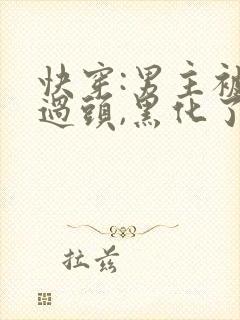 快穿:男主被
過頭,黑化了
拉兹